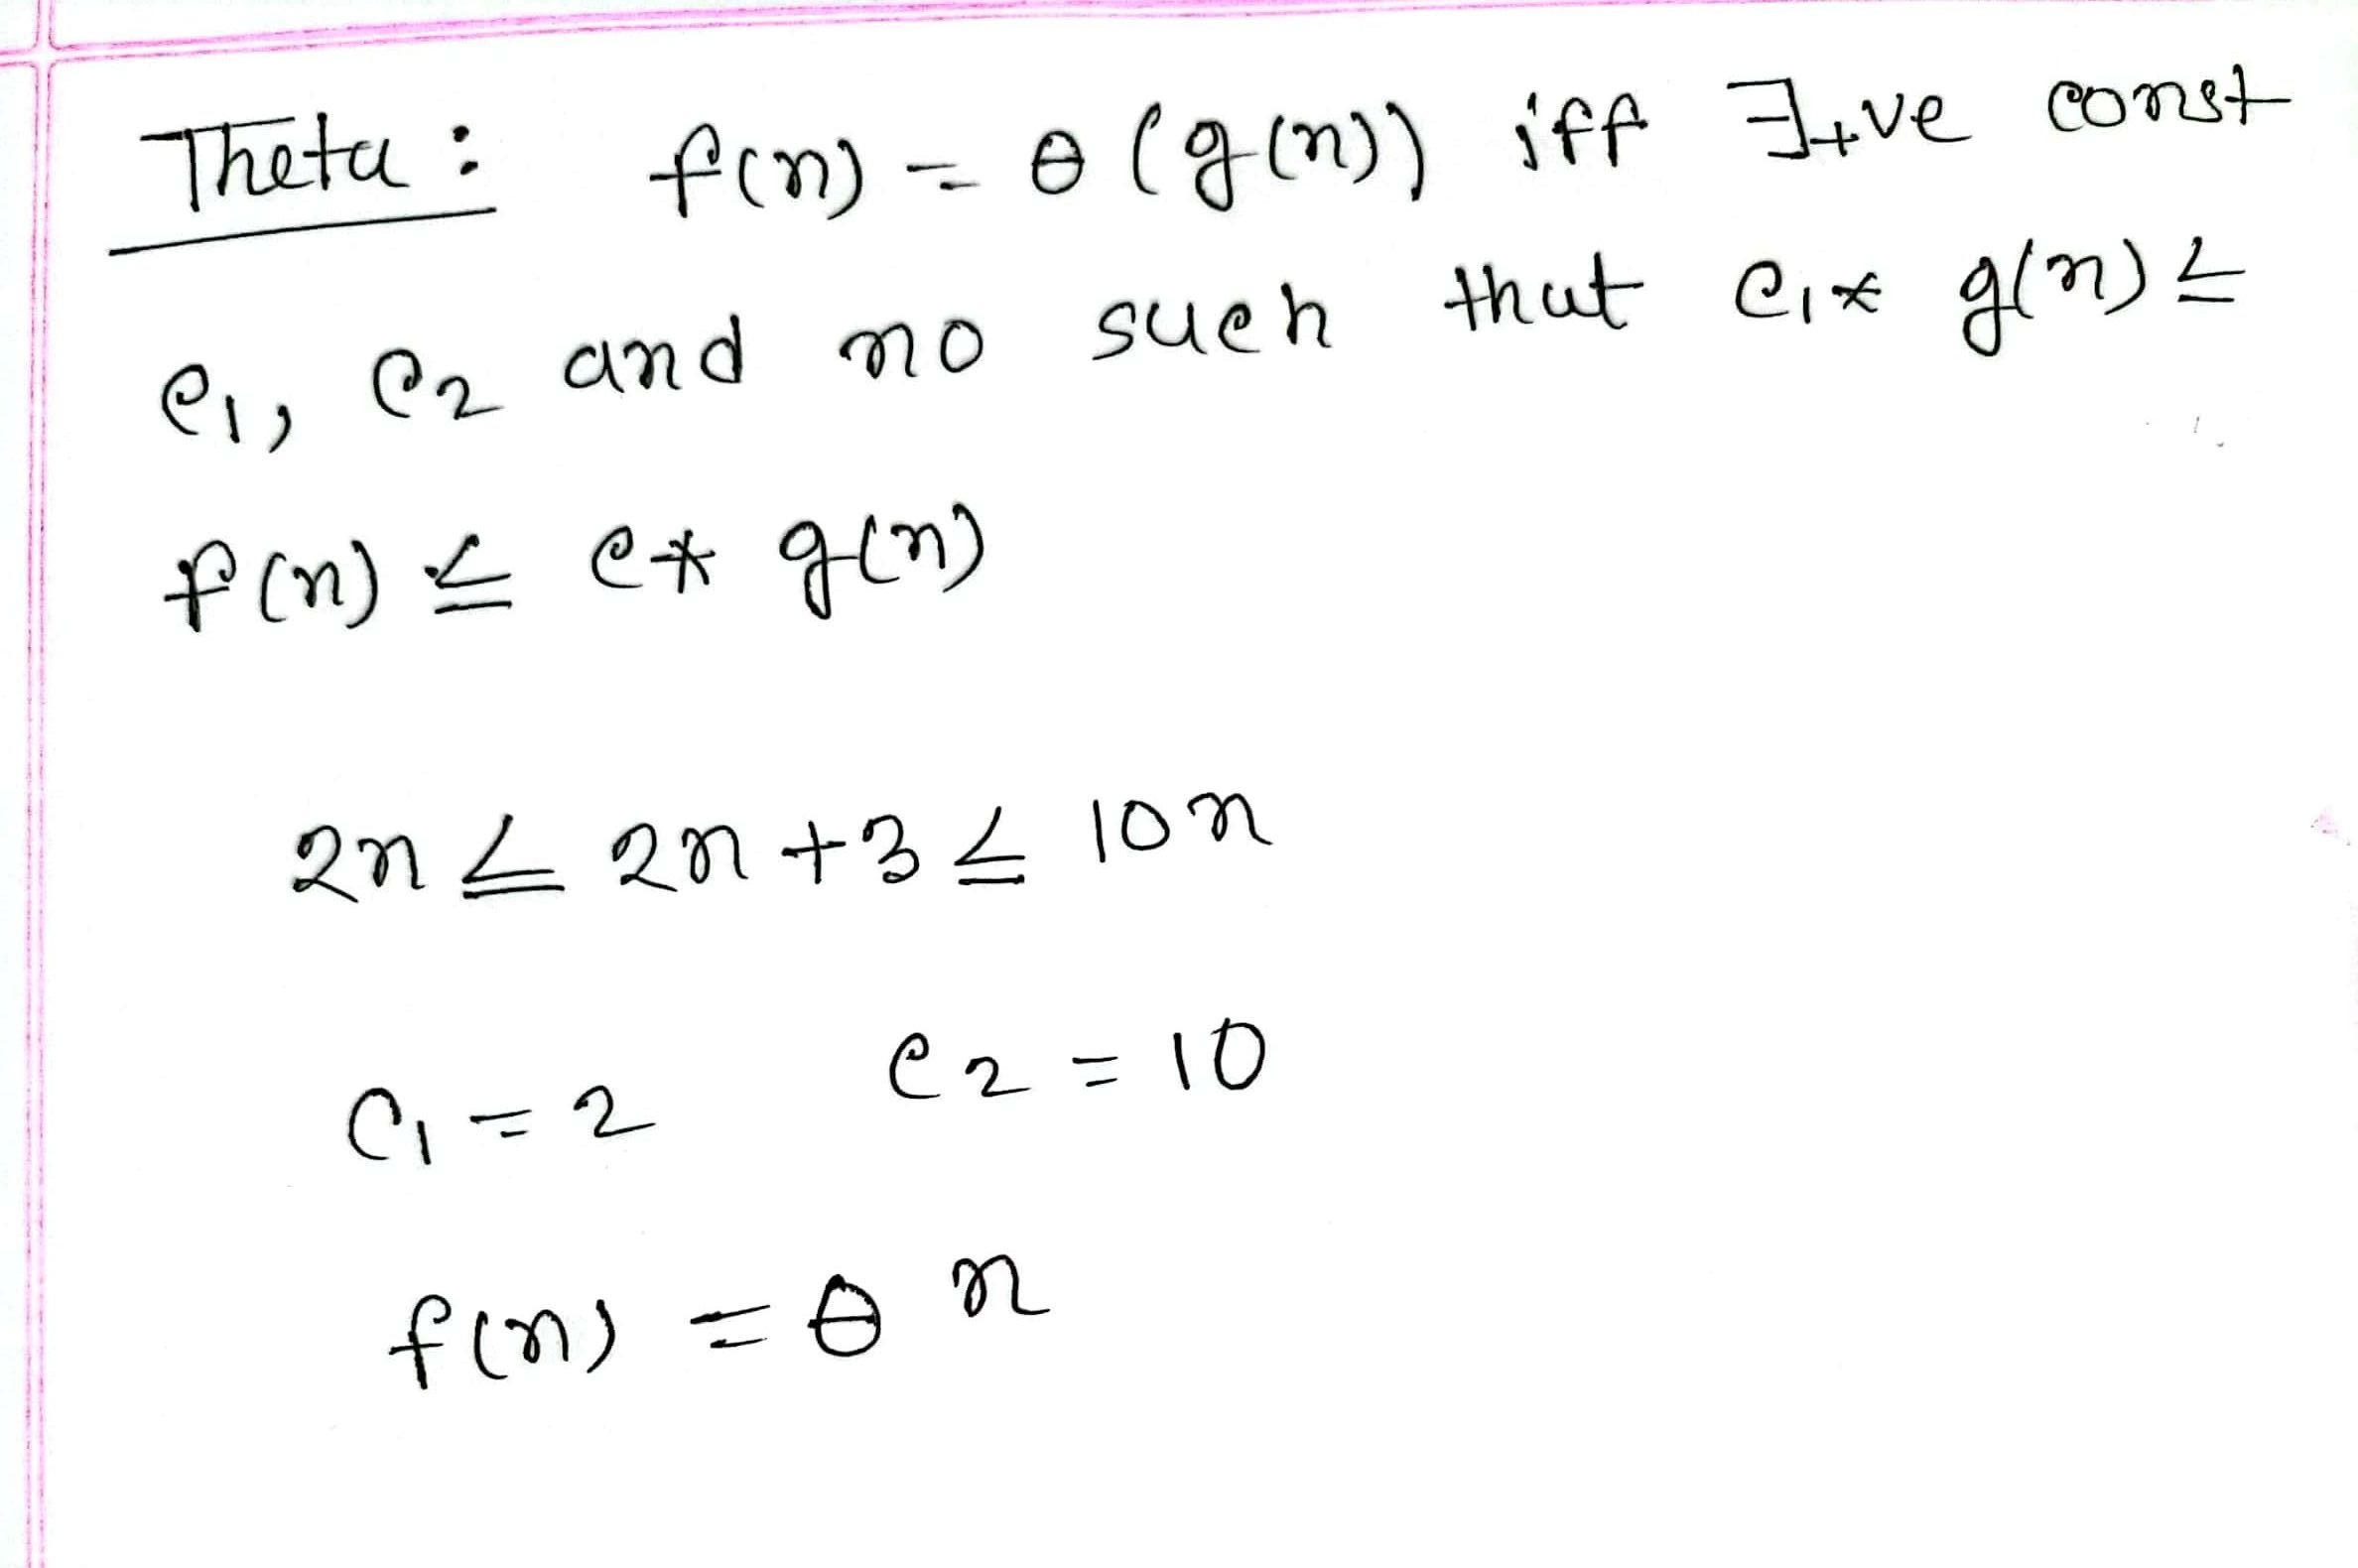 Theta : f(n) = θ (g(n)) iff ∃ +ve const
c1, c2 and no such that c1* g(n) ≤
f(n) ≤ c* g(n)
2n ≤ 2n +3 ≤ 10n
c1 = 2 c2 = 10
f(n) = θ n